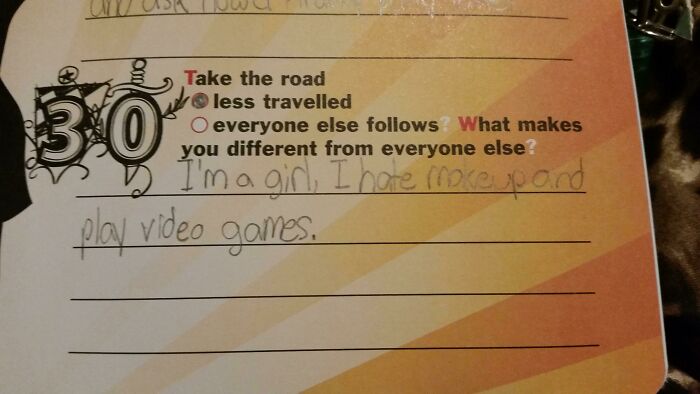 and ask
30
Take the road
less travelled
everyone else follows? What makes
you different from everyone else?
I'm a girl, I hate makeup and
play video games.